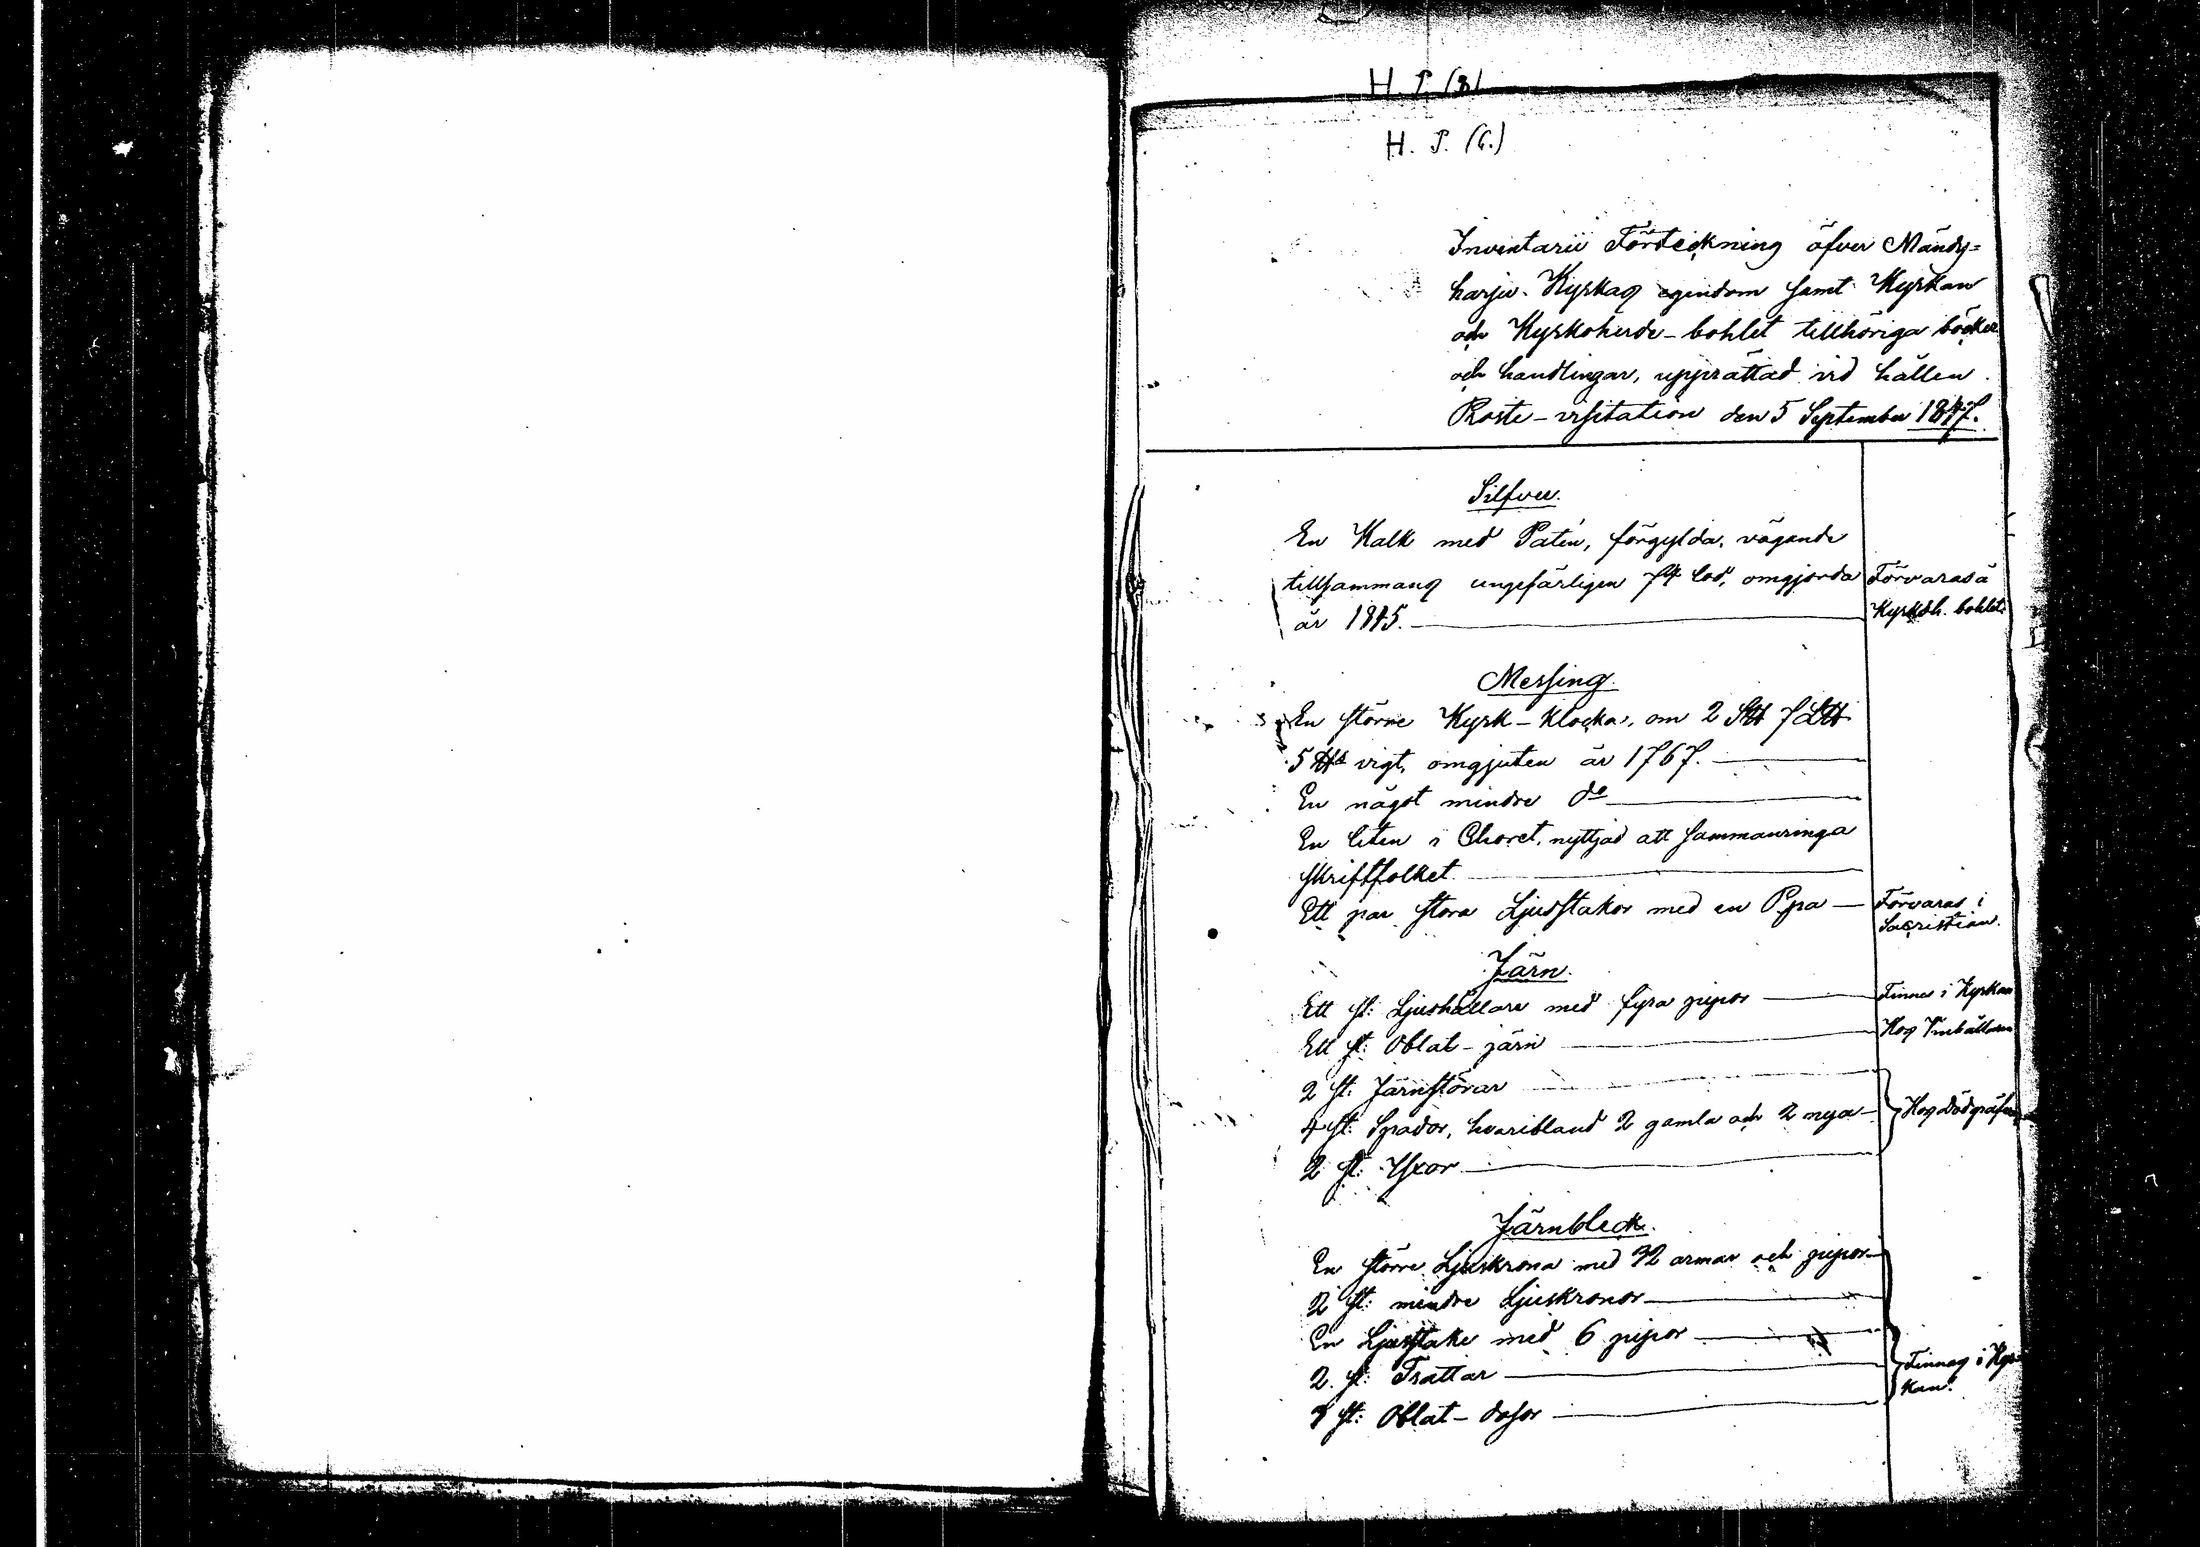 H. P. (8)
H. P. (6.)
Inventarii Förteckning öfver Mändy=
harju Kyrkas egendom samt Kyrkan
och Kyrkoherde-bohlet tillhöriga böcker
och handlingar, upprättad vid hållen
Proste-visitation den 5 September 1847.
Silfver.
En Kalk med Patén, förgylda, vägande
tillsammans ungefärligen 74 lod, omgjorda
år 1845.
Förvaras å
Kyrkoh. bohlet.
Messing.
En större Kyrk-klocka, om 2 S℔ 7 L℔
5 ℔s vigt, omgjuten år 1767.
En något mindre do
En liten i Choret, nyttjad att sammanringa
skriftfolket
Ett par stora Ljusstakar med en Pipa
Förvaras i
Sacristian.
Järn.
Ett st: Ljushållare med fyra pipor
Finnes i Kyrkan
Ett st: Oblat-järn
Hos
2 st: Järnstörar
4 st: Spador, hvaribland 2 gamla och 2 nya
2 st: Yxor
Hos Dödgräfv
Järnbleck.
En större Ljuskrona med 32 armar och pipor
2 st: mindre Ljuskronor
En Ljusstake med 6 pipor
2 st: Trattar
3 st: Oblat-dosor
Finnas i Kyr
kan.